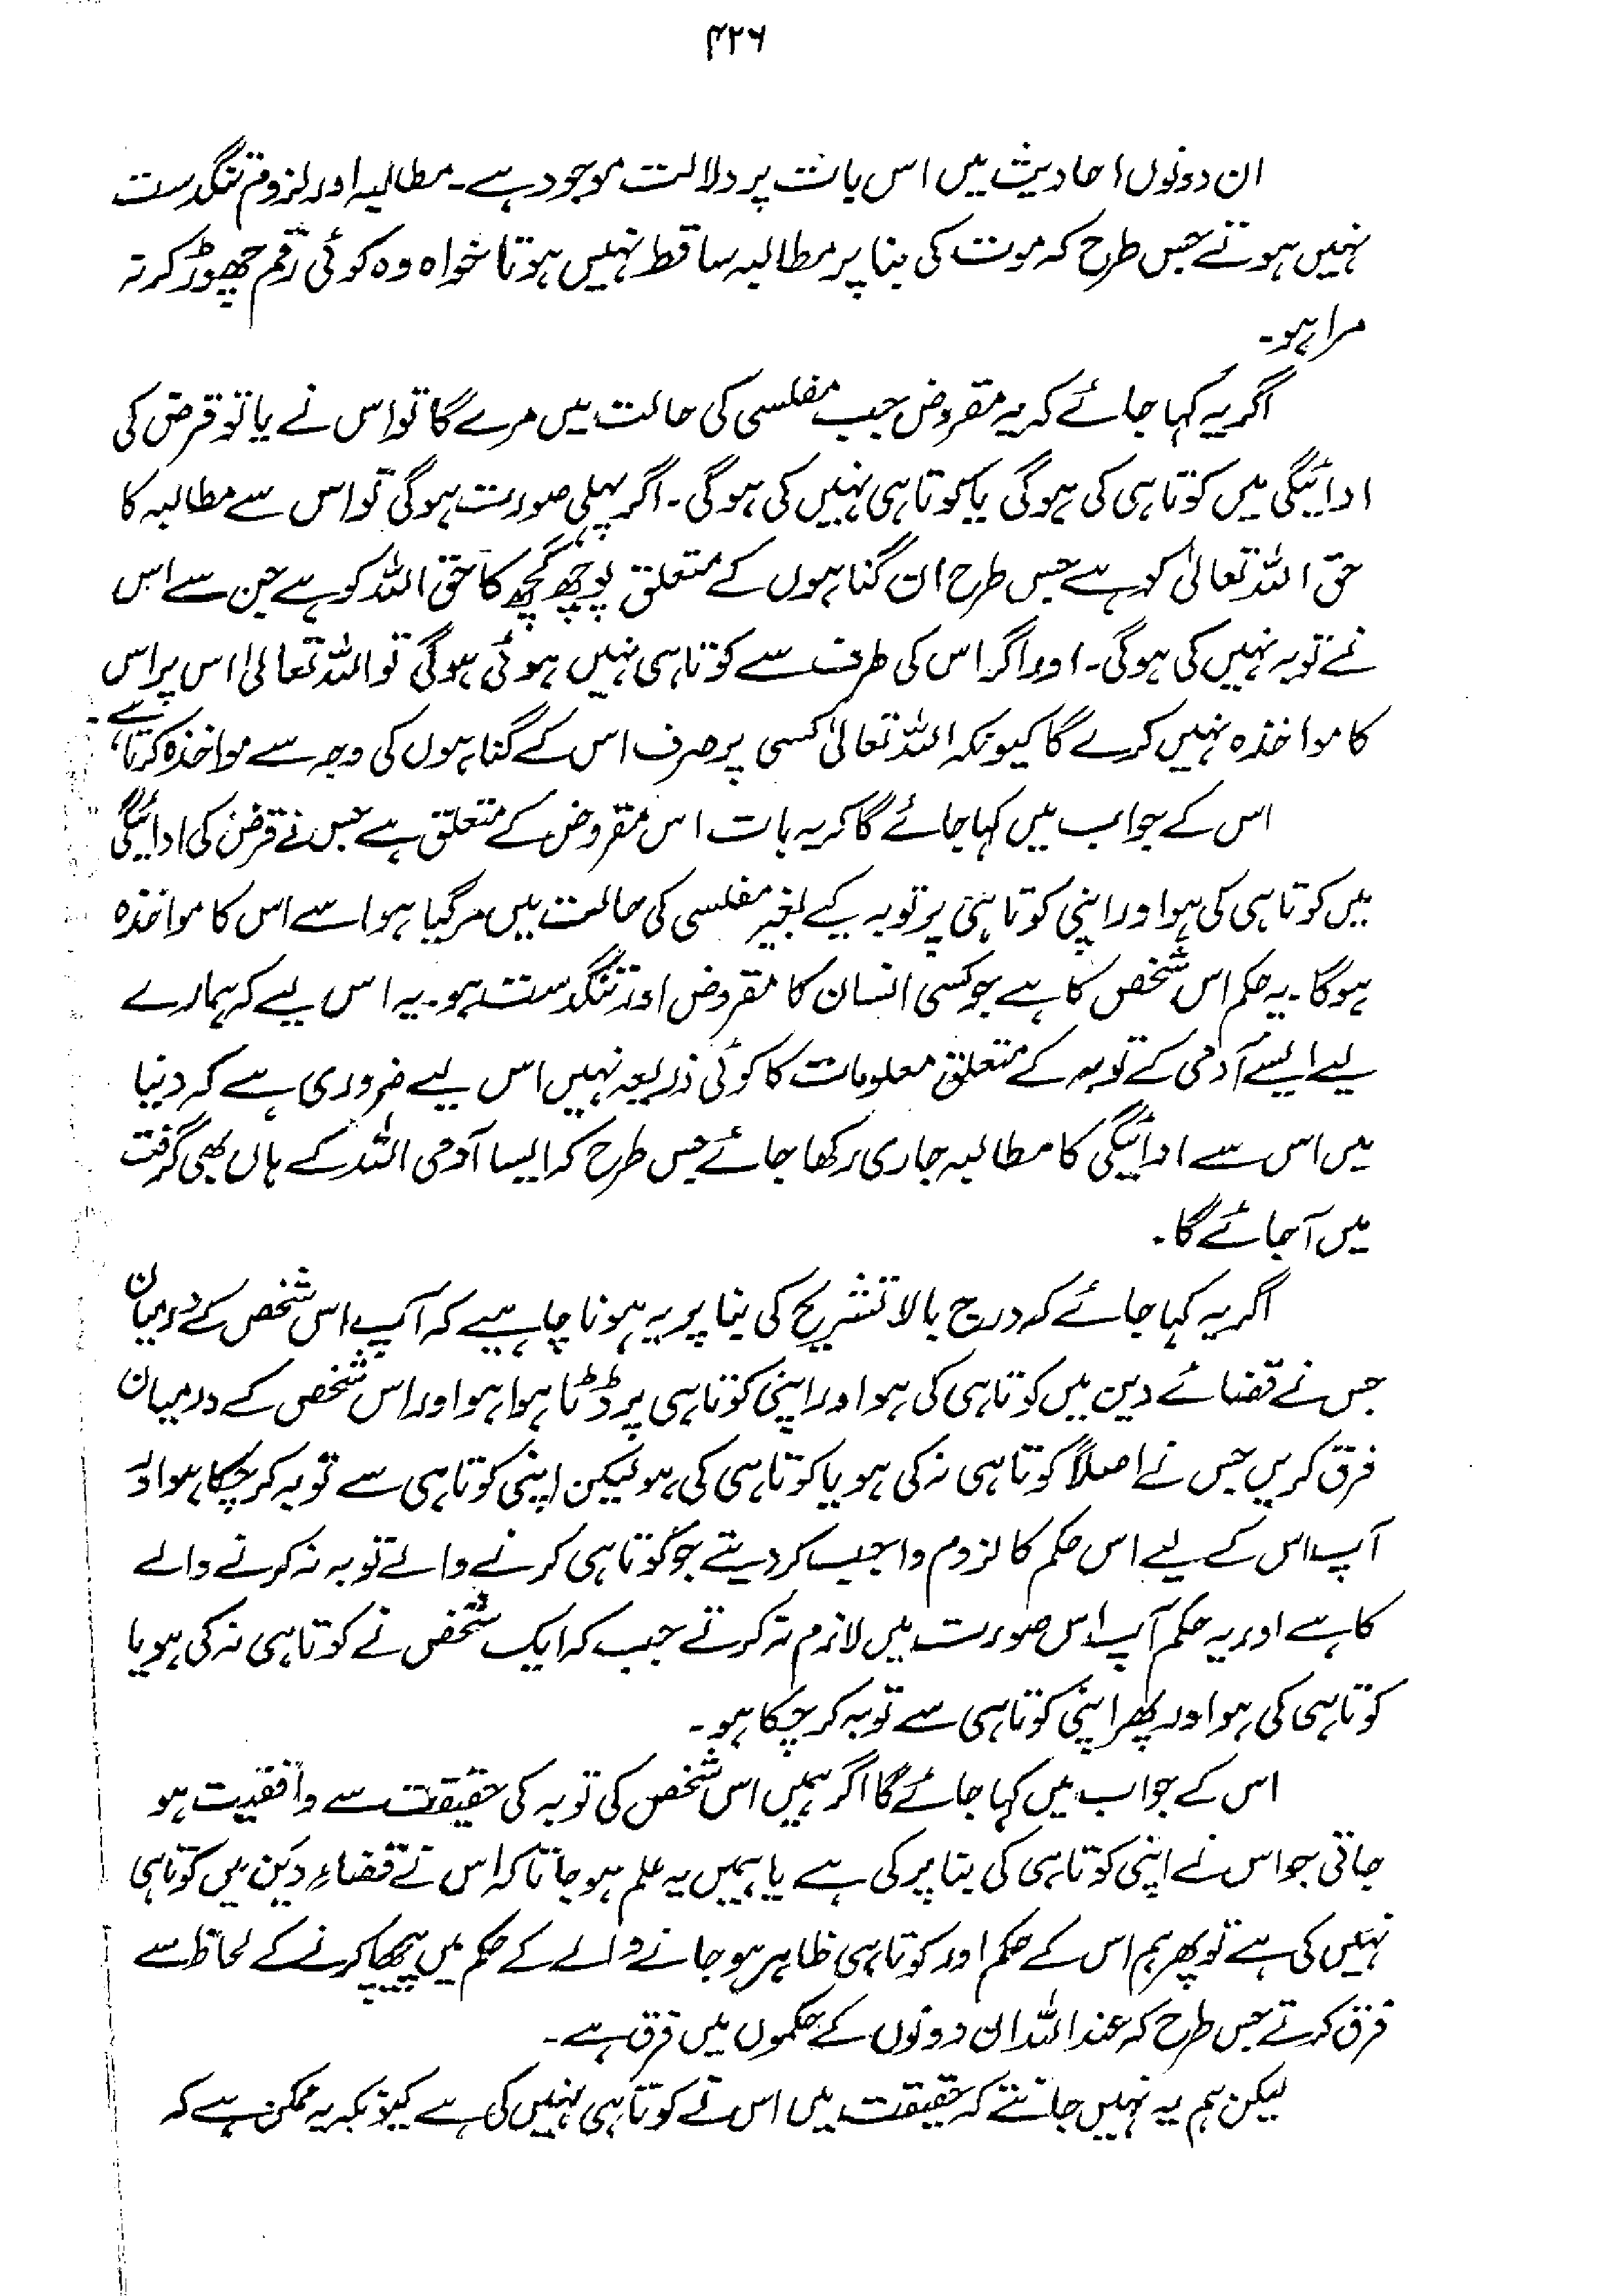 ۴۲۶
ان دونوں احادیث میں اس بات پر دلالت موجود ہے۔ مطالبہ اور لزوم تنگدست
نہیں ہوتے جس طرح کہ موت کی بنا پر مطالبہ ساقط نہیں ہوتا خواہ وہ کوئی رقم چھوڑ کر نہ
مرا ہو۔
اگر یہ کہا جائے کہ یہ مقروض جب مفلسی کی حالت میں مرے گا تو اس نے یا تو قرض کی
ادائیگی میں کوتاہی کی ہوگی یا کوتاہی نہیں کی ہوگی۔ اگر پہلی صورت ہوگی تو اس سے مطالبہ کا
حق اللہ تعالیٰ کو ہے جس طرح ان گناہوں کے متعلق پوچھ گچھ کا حق اللہ کو ہے جن سے اس
نے توبہ نہیں کی ہوگی۔ اور اگر اس کی طرف سے کوتاہی نہیں ہوئی ہوگی تو اللہ تعالیٰ اس پر اس
کا مواخذہ نہیں کرے گا کیونکہ اللہ تعالیٰ کسی پر صرف اس کے گناہوں کی وجہ سے مواخذہ کرتا ہے۔
اس کے جواب میں کہا جائے گا کہ یہ بات اس مقروض کے متعلق ہے جس نے قرض کی ادائیگی
میں کوتاہی کی ہو اور اپنی کوتاہی پر توبہ کیے بغیر مفلسی کی حالت میں مر گیا ہو اسے اس کا مواخذہ
ہوگا۔ یہ حکم اس شخص کا ہے جو کسی انسان کا مقروض اور تنگدست ہو۔ یہ اس لیے کہ ہمارے
لیے ایسے آدمی کے توبہ کے متعلق معلومات کا کوئی ذریعہ نہیں اس لیے ضروری ہے کہ دنیا
میں اس سے ادائیگی کا مطالبہ جاری رکھا جائے جس طرح کہ ایسا آدمی اللہ کے ہاں بھی گرفت
میں آجائے گا۔
اگر یہ کہا جائے کہ درج بالا تشریح کی بنا پر یہ ہونا چاہیے کہ آپ اس شخص کے درمیان
جس نے قضائے دین میں کوتاہی کی ہو اور اپنی کوتاہی پر ڈٹا ہوا ہو اور اس شخص کے درمیان
فرق کریں جس نے اصلاً کوتاہی نہ کی ہو یا کوتاہی کی ہو لیکن اپنی کوتاہی سے توبہ کر چکا ہو اور
آپ اس کے لیے اس حکم کا لزوم واجب کر دیتے جو کوتاہی کرنے والے توبہ نہ کرنے والے
کا ہے اور یہ حکم آپ اس صورت میں لازم نہ کرتے جب کہ ایک شخص نے کوتاہی نہ کی ہو یا
کوتاہی کی ہو اور پھر اپنی کوتاہی سے توبہ کر چکا ہو۔
اس کے جواب میں کہا جائے گا اگر ہمیں اس شخص کی توبہ کی حقیقت سے واقفیت ہو
جاتی جو اس نے اپنی کوتاہی کی بنا پر کی ہے یا ہمیں یہ علم ہو جاتا کہ اس نے قضاءِ دَین میں کوتاہی
نہیں کی ہے تو پھر ہم اس کے حکم اور کوتاہی ظاہر ہو جانے والے کے حکم میں پیچھا کرنے کے لحاظ سے
فرق کرتے جس طرح کہ عند اللہ ان دونوں کے حکموں میں فرق ہے۔
لیکن ہم یہ نہیں جانتے کہ حقیقت میں اس نے کوتاہی نہیں کی ہے کیونکہ یہ ممکن ہے کہ